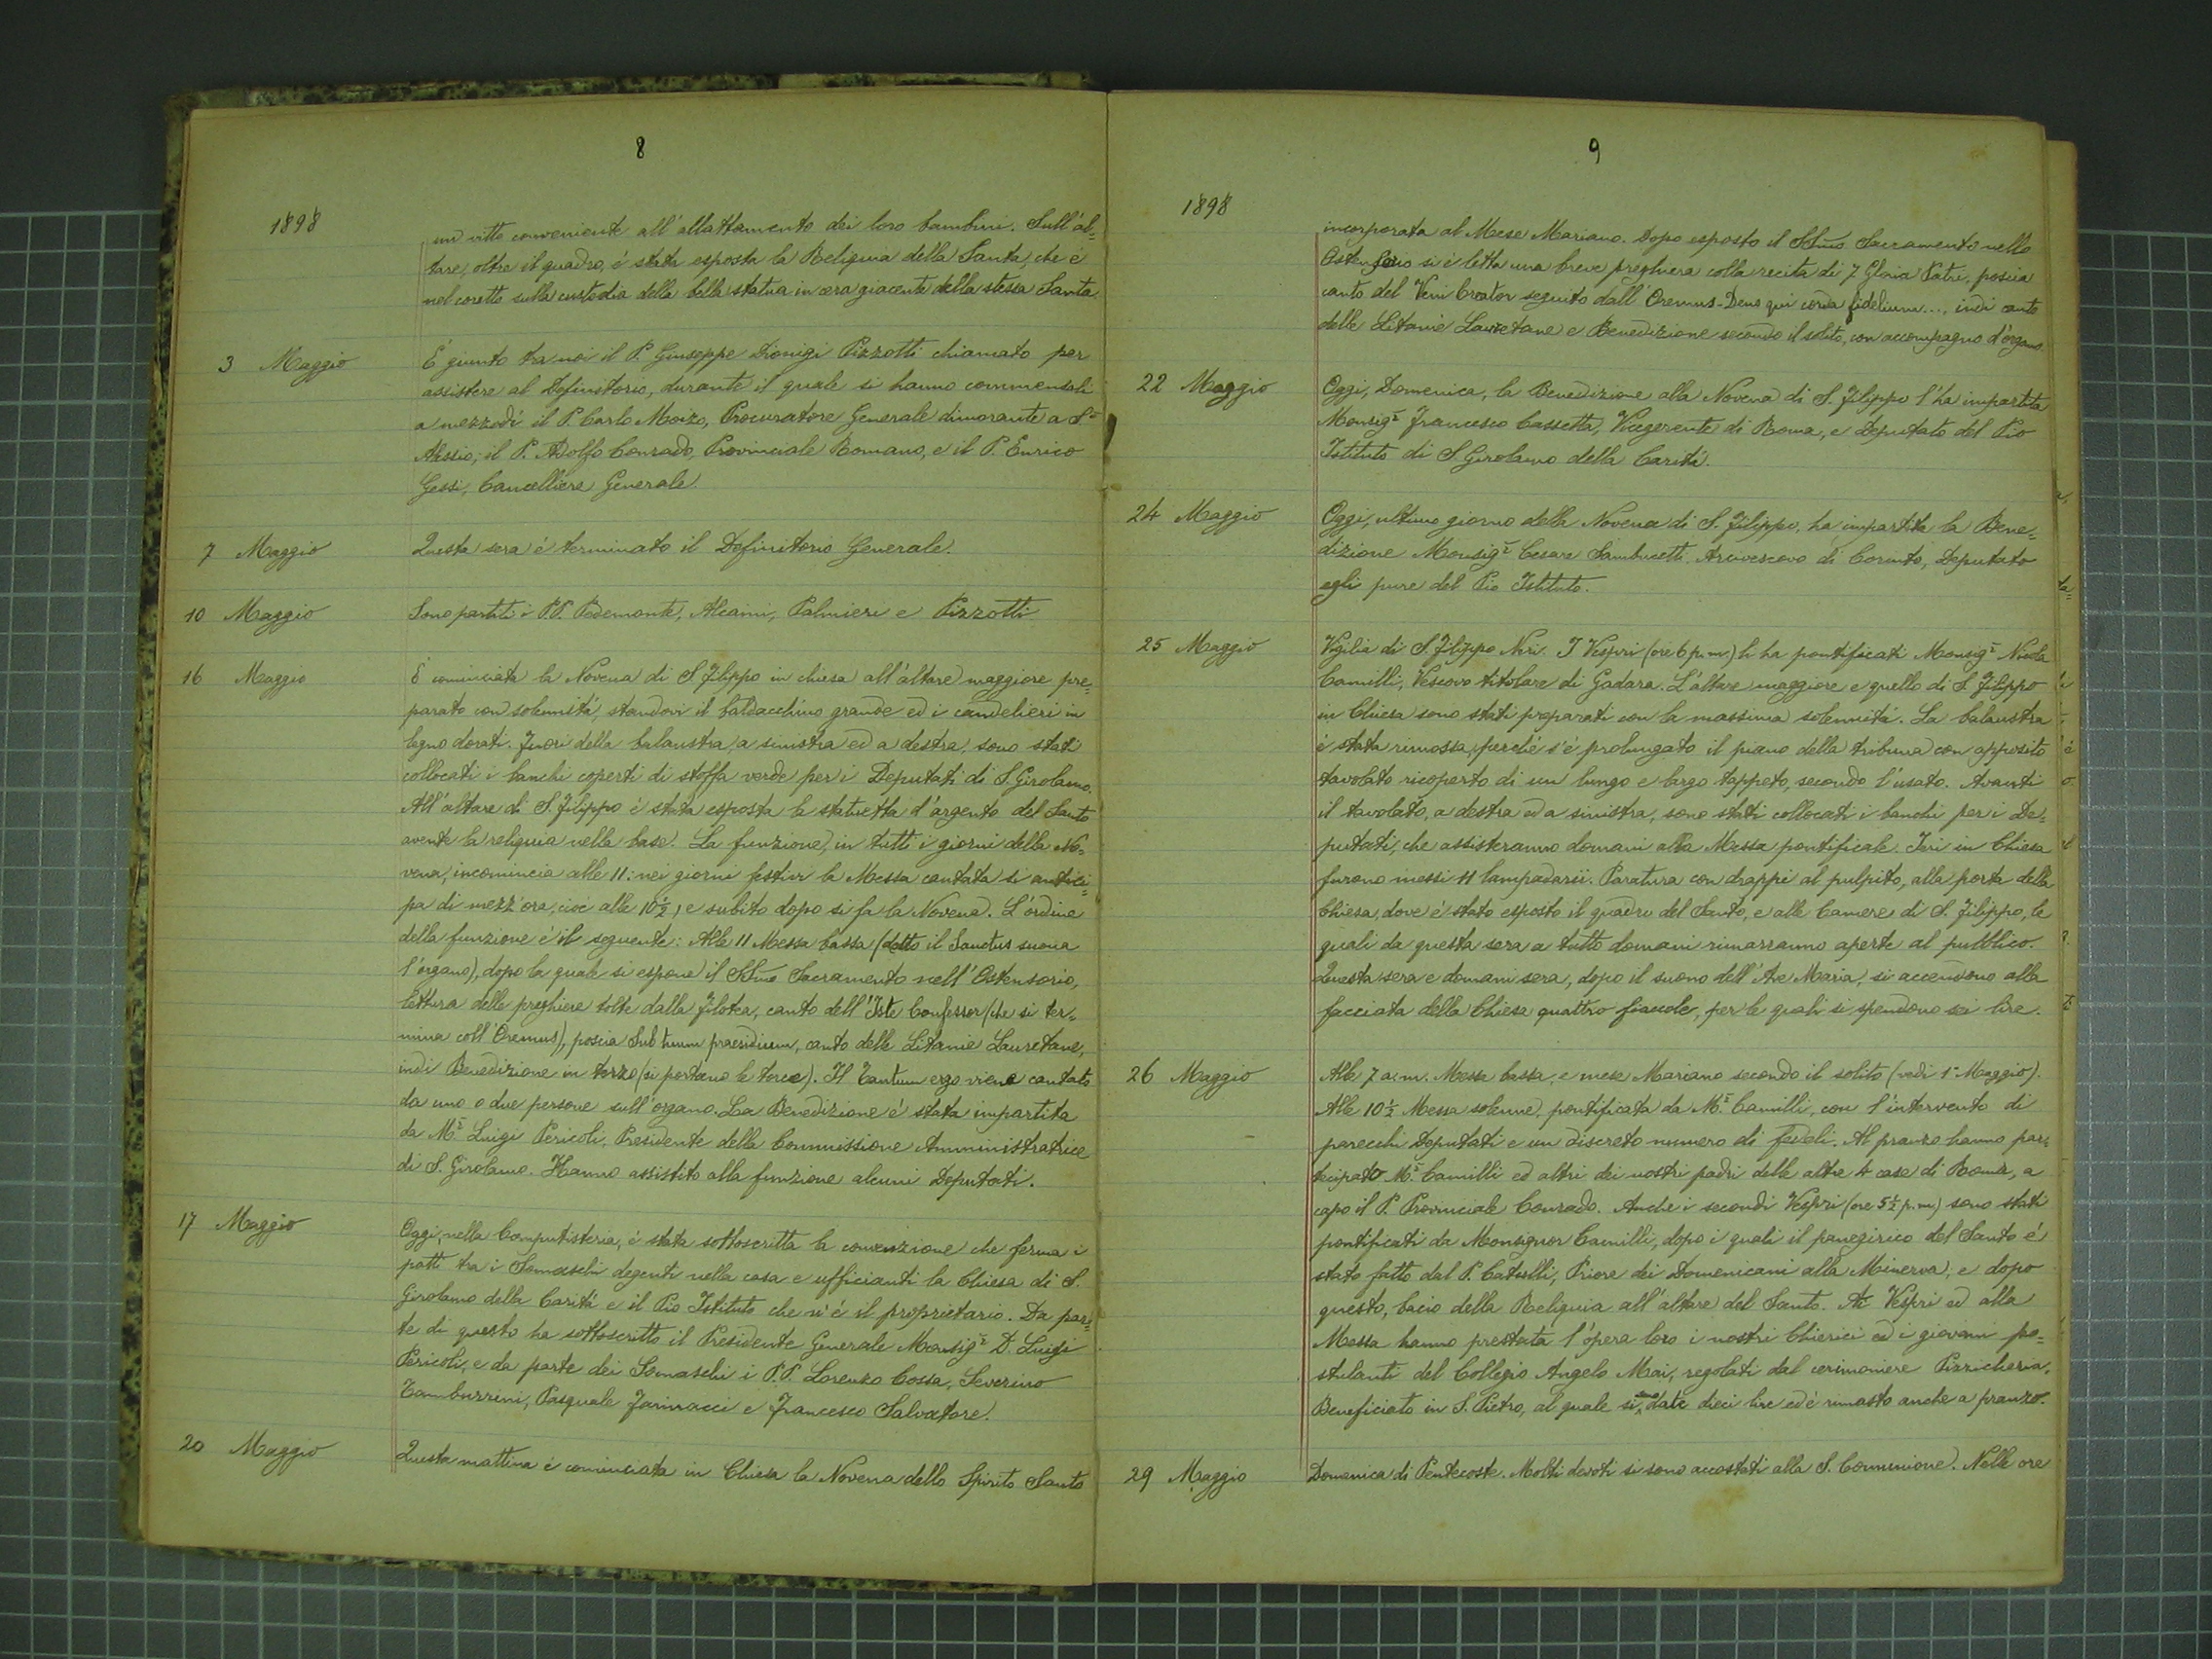 8
1898
un vitto conveniente all'allattamento dei loro bambini. Sull'al=
tare, oltre il quadro, é stata esposta la Reliquia della Santa, che é
nel coretto sulla custodia della bella statua in cera giacente della stessa Santa.
3 Maggio É giunto tra noi il P. Giuseppe Dionigi Pizzotti chiamato per
assistere al Definitorio, durante il quale si hanno commensali
a mezzodí il P. Carlo Moizo, Procuratore Generale dimorante a S.
Alessio, il P. Adolfo Conrado, Provinciale Romano, e il P. Enrico
Gessi, Cancelliere Generale.
7 Maggio Questa sera é terminato il Definitorio Generale.
10 Maggio Sono partiti i P.P. Pedemonte, Alcaini, Palmieri e Pizzotti
16 Maggio É cominciata la Novena di S. Filippo in chiesa all'altare maggiore pre=
parato con solennitá, standovi il baldacchino grande ed i candelieri in
legno dorati. Fuori della balaustra, a sinistra ed a destra, sono stati
collocati i banchi coperti di stoffa verde per i Deputati di S. Girolamo.
All'altare di S. Filippo é stata esposta la statuetta d'argento del Santo
avente la reliquia nella base. La funzione, in tutti i giorni della No=
vena, incomincia alle 11: nei giorni festivi la Messa cantata si antici=
pa di mezz'ora, cioé alle 10½, e subito dopo si fa la Novena. L'ordine
della funzione é il seguente: Alle 11 Messa bassa (detto il Sanctus suona
l'organo), dopo la quale si espone il SSmo Sacramento nell'Ostensorio,
lettura delle preghiere tolte dalla Filotea, canto dell'Iste Confessor (che si ter=
mina coll'Oremus), poscia Sub tuum praesidium, canto delle Litanie Lauretane,
indi Benedizione in terzo (si portano le torce). Il Tantum ergo viene cantato
da uno o due persone sull'organo. La Benedizione é stata impartita
da Mr Luigi Pericoli, Presidente della Commissione Amministratrice
di S. Girolamo. Hanno assistito alla funzione alcuni Deputati.
17 Maggio Oggi, nella Computisteria, é stata sottoscritta la convenzione che ferma i
patti tra i Somaschi degenti nella casa e ufficianti la Chiesa di S.
Girolamo della Caritá e il Pio Istituto che n'é il proprietario. Da par=
te di questo ha sottoscritto il Presidente Generale Monsigr D. Luigi
Pericoli, e da parte dei Somaschi i P.P. Lorenzo Cossa, Severino
Tamburrini, Pasquale Farinacci e Francesco Salvatore.
20 Maggio Questa mattina é cominciata in Chiesa la Novena dello Spirito Santo
9
1898
incorporata al Mese Mariano. Dopo esposto il SSmo Sacramento nello
Ostensorio si é letta una breve preghiera colla recita di 7 Gloia Patri, poscia
canto del Veni Creator seguito dall'Oremus-Deus qui corda fidelium..., indi canto
delle Litanie Lauretane e Benedizione secondo il solito, con accompagno d'órgano.
22 Maggio Oggi, Domenica, la Benedizione alla Novena di S. Filippo l'ha impartita
Monsigr Francesco Cassetta, Vicegerente di Roma, e Deputato del Pio
Istituto di S. Girolamo della Caritá.
24 Maggio Oggi, ultimo giorno della Novena di S. Filippo, ha impartita la Bene=
dizione Monsigr Cesare Sambucetti Arcivescovo di Corinto, Deputato
egli pure del Pio Istituto.
25 Maggio Vigilia di S. Filippo Neri. I Vespri (ore 6 p.m.) li ha pontificati Monsigr Nicola
Camilli, Vescovo titolare di Gadara. L'altare maggiore e quello di S. Filippo
in Chiesa sono stati preparati con la massima solennitá. La balaustra
é stata rimossa, perché s'é prolungato il piano della tribuna con apposito
tavolato ricoperto di un lungo e largo tappeto, secondo l'usato. Avanti
il tavolato, a destra ed a sinistra, sono stati collocati i banchi per i De=
putati, che assisteranno domani alla Messa pontificale. Ieri in Chiesa
furono messi 11 lampadarii. Paratura con drappi al pulpito, alla porta della
Chiesa, dove é stato esposto il quadro del Santo, e alle Camere di S. Filippo, le
quali da questa sera a tutto domani rimarranno aperte al pubblico.
Questa sera e domani sera, dopo il suono dell'Ave Maria, si accendono alla
facciata della Chiesa quattro fiaccole, per le quali si spendono sei lire.
26 Maggio Alle 7 a.m. Messa bassa, e mese Mariano secondo il solito (vedi 1º Maggio).
Alle 10½ Messa solenne, pontificata da Mr Camilli, con l'intervento di
parecchi Deputati e un discreto numero di fedeli. Al pranzo hanno par=
tecipato Mr Camilli ed altri dei nostri padri delle altre 4 case di Roma, a
capo il P. Provinciale Conrado. Anche i secondi Vespri (ore 5½ p.m.) sono stati
pontificati da Monsignor Camilli, dopo i quali il panegirico del Santo é
stato fatto dal P. Catselli, Priore dei Domenicani alla Minerva, e dopo
questo, bacio della Reliquia all'altare del Santo. Ai Vespri ed alla
Messa hanno prestata l'opera loro i nostri Chierici ed i giovani po=
stulanti del Collegio Angelo Mai, regolati dal cerimoniere Pizzicheria,
Beneficiato in S. Pietro, al quale si sono date dieci lire ed é rimasto anche a pranzo.
29 Maggio Domenica di Pentecoste. Molti devoti si sono accostati alla S. Comunione. Nelle ore